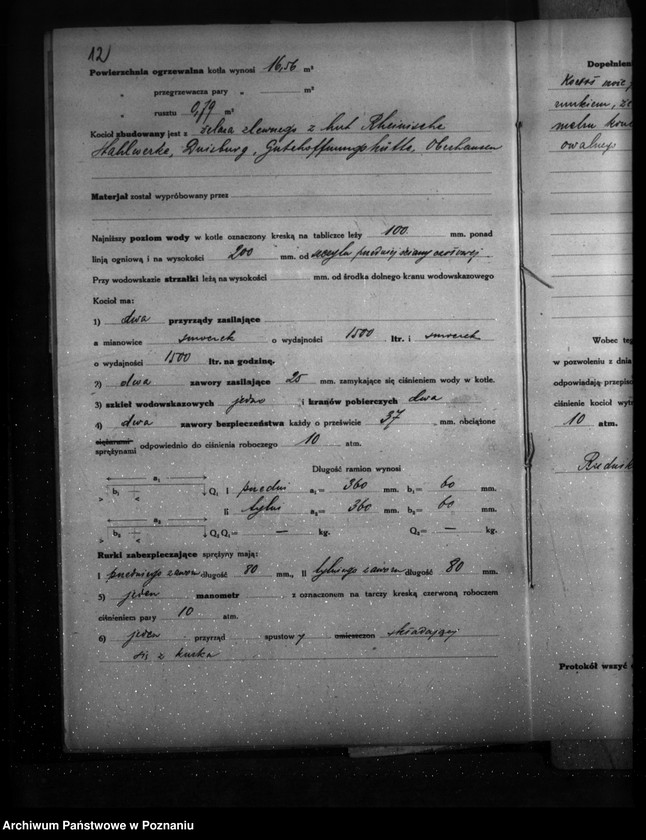 12)
Powierzchnia ogrzewalna kotła wynosi 16,56 m²
„ przegrzewacza pary „ m²
„ rusztu 0,79 m²
Kocioł zbudowany jest z żelaza zlewnego z hut Rheinische
Stahlwerke, Duisburg, Gutehoffnungshütte, Oberhausen
Materjał został wypróbowany przez
Najniższy poziom wody w kotle oznaczony kreską na tabliczce leży 100 mm. ponad
linją ogniową i na wysokości 200 mm. od szczytu przedniej ściany czołowej
Przy wodowskazie strzałki leżą na wysokości mm. od środka dolnego kranu wodowskazowego
Kocioł ma:
1) dwa przyrządy zasilające
a mianowicie smoczek o wydajności 1500 ltr. i smoczek
o wydajności 1500 ltr. na godzinę.
2) dwa zawory zasilające 25 mm. zamykające się ciśnieniem wody w kotle.
3) szkieł wodowskazowych jedno i kranów pobierczych dwa
4) dwa zawory bezpieczeństwa każdy o prześwicie 37 mm. obciążone
ciężarami
sprężynami odpowiednio do ciśnienia roboczego 10 atm.
Długość ramion wynosi
a₁ b₁ Q₁ I przedni a₁= 360 mm. b₁= 60 mm.
II tylni a₂= 360 mm. b₂= 60 mm.
a₂ b₂ Q₂ Q₁= — kg. Q₂= — kg.
Rurki zabezpieczające sprężyny mają:
I przedniego zaworu długość 80 mm., II tylniego zaworu długość 80 mm.
5) jeden manometr z oznaczonem na tarczy kreską czerwoną roboczem
ciśnieniem pary 10 atm.
6) jeden przyrząd spustowy umieszczon składający
się z kurka
Dopełnien
Kocioł
mal
owalnego
Wobec teg
w pozwoleniu z dnia
odpowiadają przepiso
ciśnienie kocioł wyt
10 atm.
Protokół wszyć
Archiwum Państwowe w Poznaniu